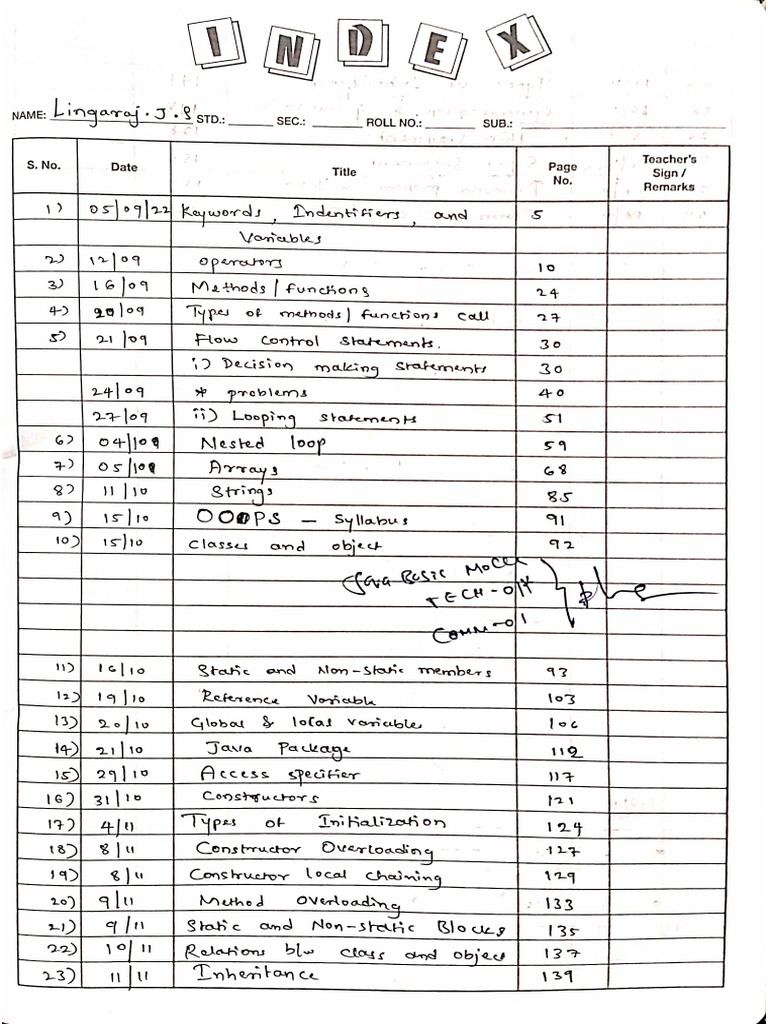 INDEX
NAME: Lingaraj.J.S STD.: SEC.: ROLL NO.: SUB.:
S. No. Date Title Page No. Teacher's Sign / Remarks
1) 05/09/22 Keywords, Indentifiers, and 5
Variables
2) 12/09 operators 10
3) 16/09 Methods/functions 24
4) 20/09 Types of methods/functions call 27
5) 21/09 Flow control statements. 30
i) Decision making statements 30
24/09 * problems 40
27/09 ii) Looping statements 51
6) 04/10 Nested loop 59
7) 05/10 Arrays 68
8) 11/10 Strings 85
9) 15/10 OOOPS - Syllabus 91
10) 15/10 classes and object 92
Java Basic Mock
TECH-01
COMM-01
11) 16/10 Static and Non-static members 93
12) 19/10 Reference Variable 103
13) 20/10 Global & local variables 106
14) 21/10 Java Package 112
15) 29/10 Access specifier 117
16) 31/10 Constructors 121
17) 4/11 Types of Initialization 124
18) 8/11 Constructor Overloading 127
19) 8/11 Constructor local chaining 129
20) 9/11 Method Overloading 133
21) 9/11 Static and Non-static Blocks 135
22) 10/11 Relations b/w class and object 137
23) 11/11 Inheritance 139